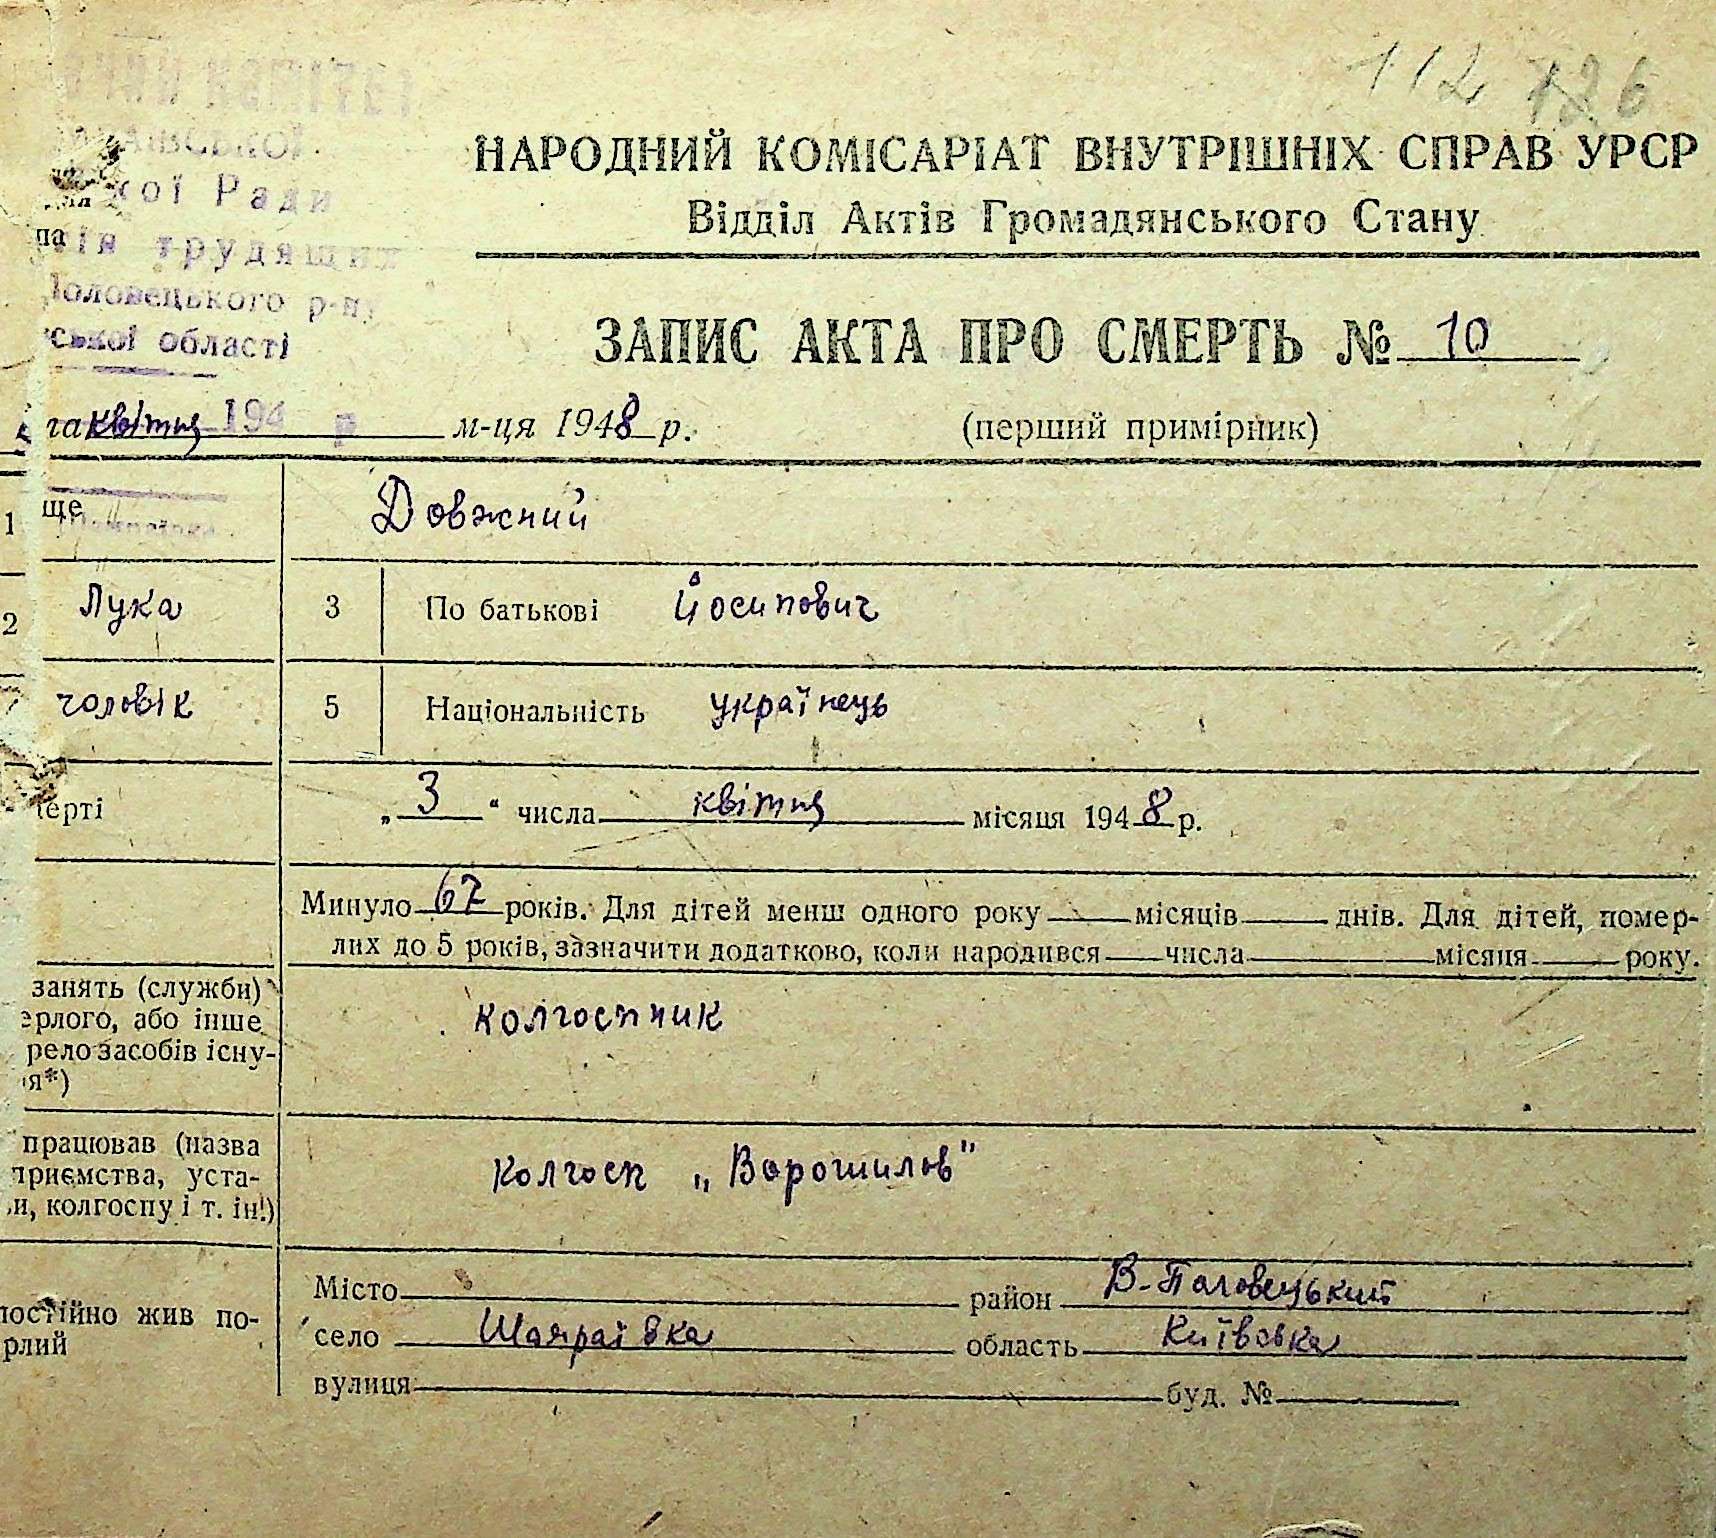 112 126
НАРОДНИЙ КОМІСАРІАТ ВНУТРІШНІХ СПРАВ УРСР
кої Ради
Відділ Актів Громадянського Стану
па
трудящих
Половецького р-ну
ської області
ЗАПИС АКТА ПРО СМЕРТЬ № 10
га квітня 194 р м-ця 1948 р. (перший примірник)
1 ще Довжний
2 Лука 3 По батькові Йосипович
чоловік 5 Національність українець
ерті „3“ числа квітня місяця 1948 р.
Минуло 67 років. Для дітей менш одного року місяців днів. Для дітей, помер-
лих до 5 років, зазначити додатково, коли народився числа місяця року.
занять (служби)
ерлого, або інше
рело засобів існу-
я*)
колгоспник
працював (назва
приємства, уста-
и, колгоспу і т. ін.)
колгосп „Ворошилов"
постійно жив по-
рлий
Місто район В-Половецький
село Шапраївка область Київська
вулиця буд. №